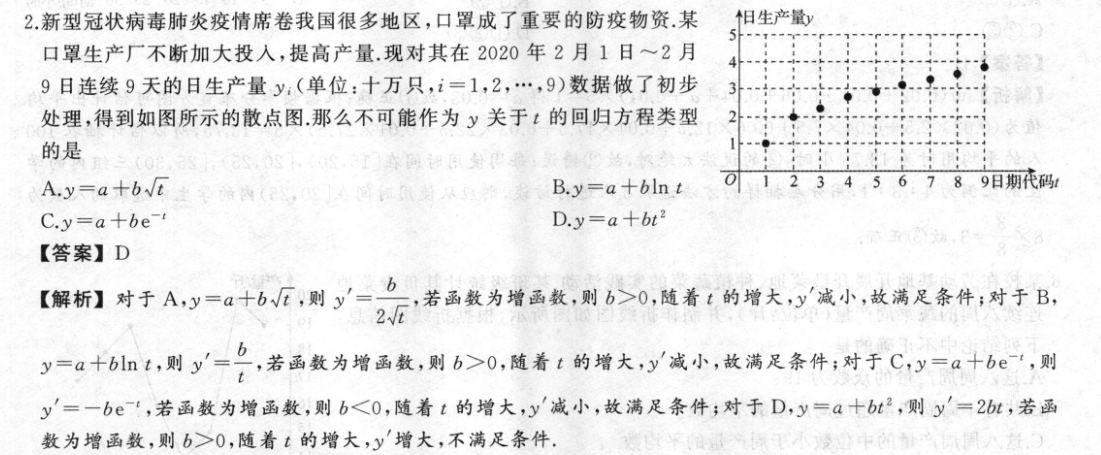 2.新型冠状病毒肺炎疫情席卷我国很多地区,口罩成了重要的防疫物资.某
口罩生产厂不断加大投入,提高产量.现对其在 2020 年 2 月 1 日~2 月
9 日连续 9 天的日生产量 yᵢ(单位:十万只,i=1,2,…,9)数据做了初步
处理,得到如图所示的散点图.那么不可能作为 y 关于 t 的回归方程类型
的是
A.y=a+b√t
B.y=a+bln t
C.y=a+be⁻ᵗ
D.y=a+bt²
日生产量y
5
4
3
2
1
O 1 2 3 4 5 6 7 8 9日期代码t
【答案】D
【解析】对于 A,y=a+b√t,则 y′=b/(2√t),若函数为增函数,则 b>0,随着 t 的增大,y′减小,故满足条件;对于 B,
y=a+bln t,则 y′=b/t,若函数为增函数,则 b>0,随着 t 的增大,y′减小,故满足条件;对于 C,y=a+be⁻ᵗ,则
y′=-be⁻ᵗ,若函数为增函数,则 b<0,随着 t 的增大,y′减小,故满足条件;对于 D,y=a+bt²,则 y′=2bt,若函
数为增函数,则 b>0,随着 t 的增大,y′增大,不满足条件.